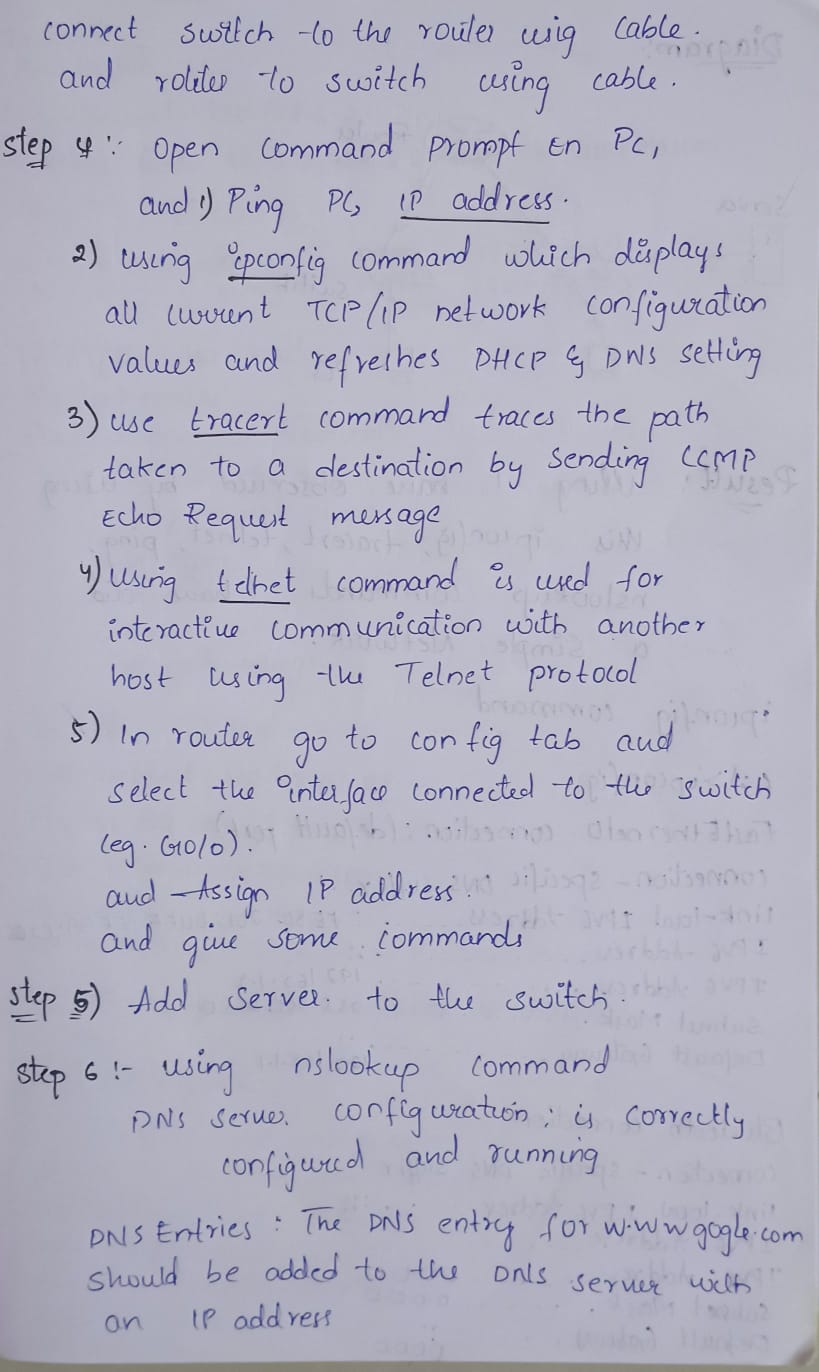 connect switch to the router usig cable.
and roliter to switch using cable.
step 4 : open command prompt en PC,
and 1) Ping PC, IP address.
2) using ipconfig command which displays
all current TCP/IP network configuration
values and refreshes DHCP & DNS setting
3) use tracert command traces the path
taken to a destination by sending ICMP
Echo Request message
4) Using telnet command is used for
interactive communication with another
host using the Telnet protocol
5) In router go to config tab and
select the interface connected to the switch
(eg. G0/0).
and Assign IP address.
and give some commands
step 5) Add server. to the switch.
step 6 :- using nslookup command
DNS server. configuration : is correctly
configured and running
DNS Entries : The DNS entry for w.w.w gogle.com
should be added to the DNS server with
an IP address